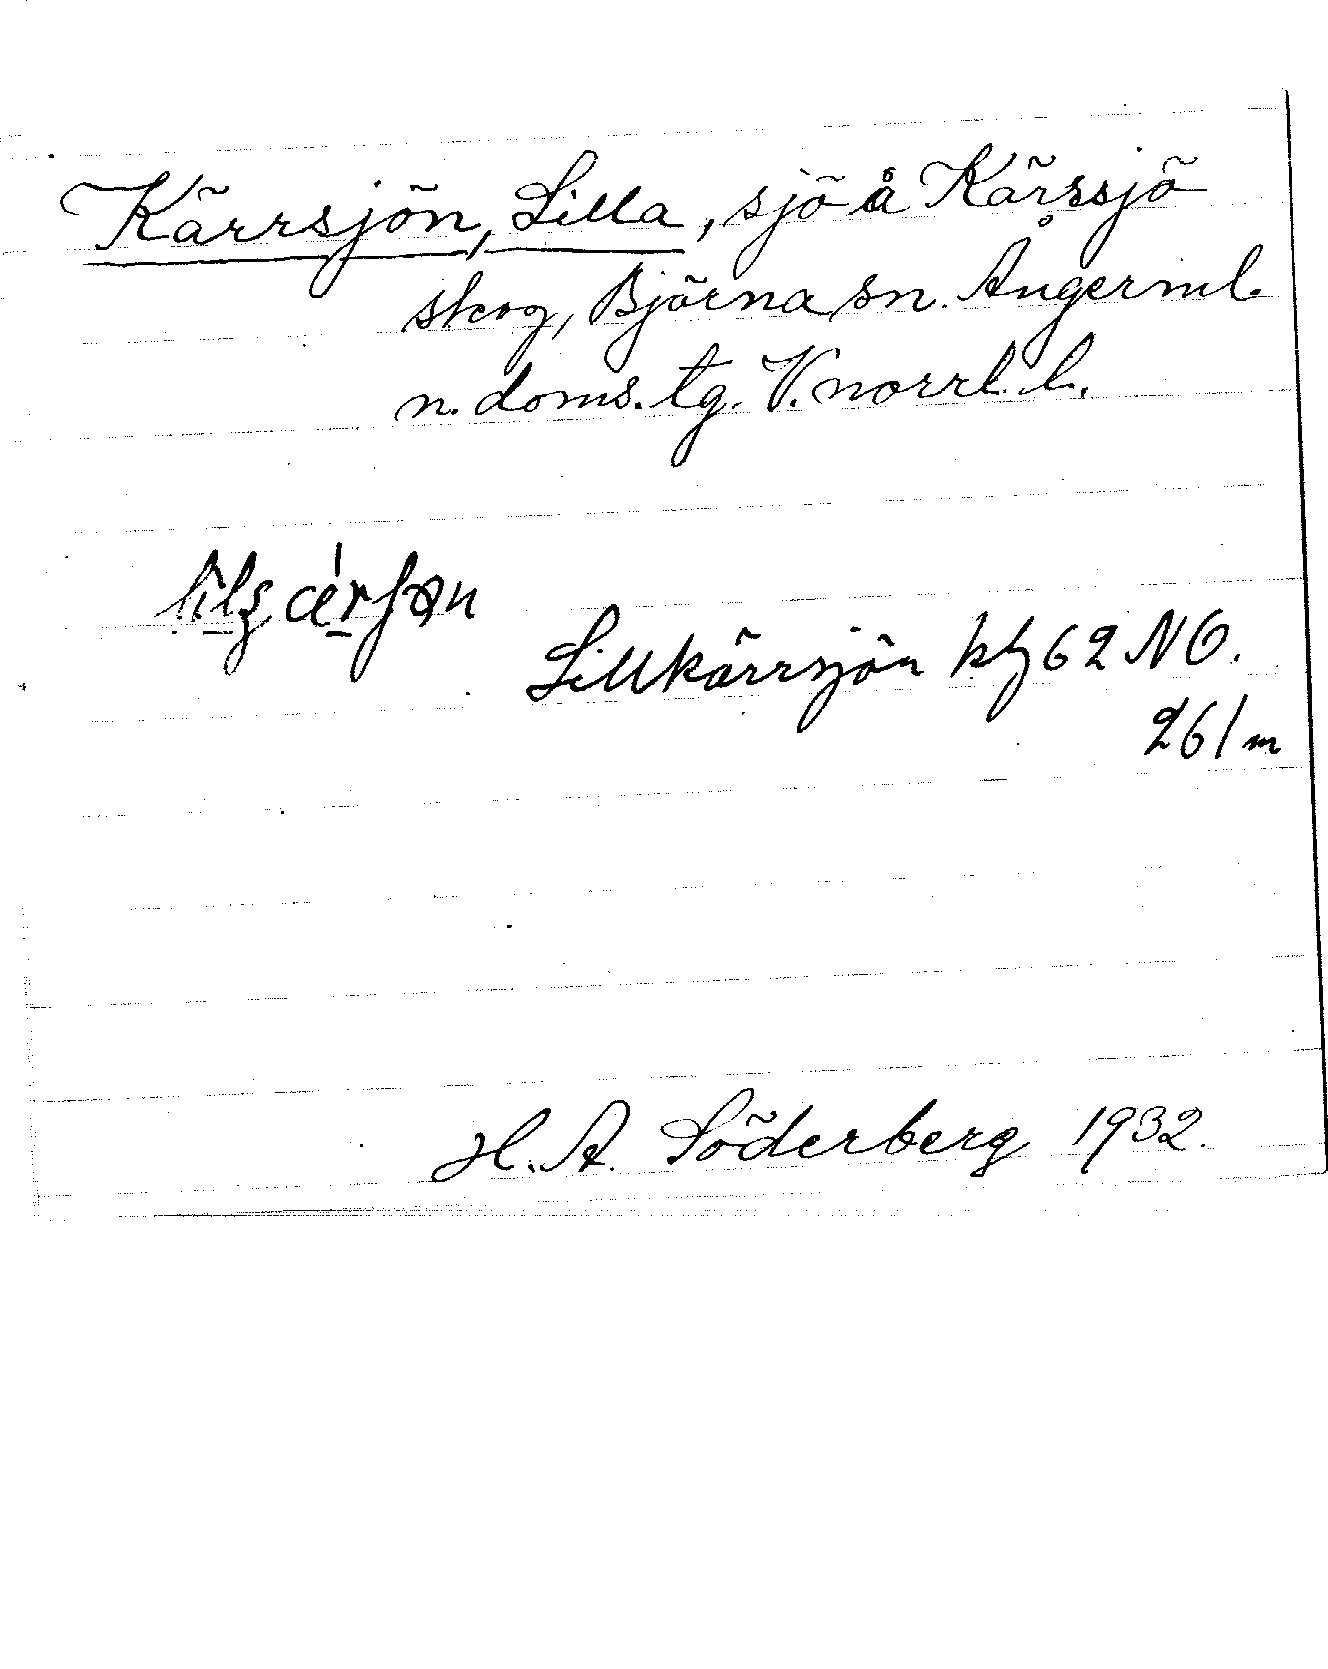 Kärrsjön, Lilla, sjö å Kärssjö
skog, Björna sn. Ångerml.
n. doms. tg. V.norrl. l.
Lillkärrsjön kbl 62 NO.
261 m
H. A. Söderberg 1932.